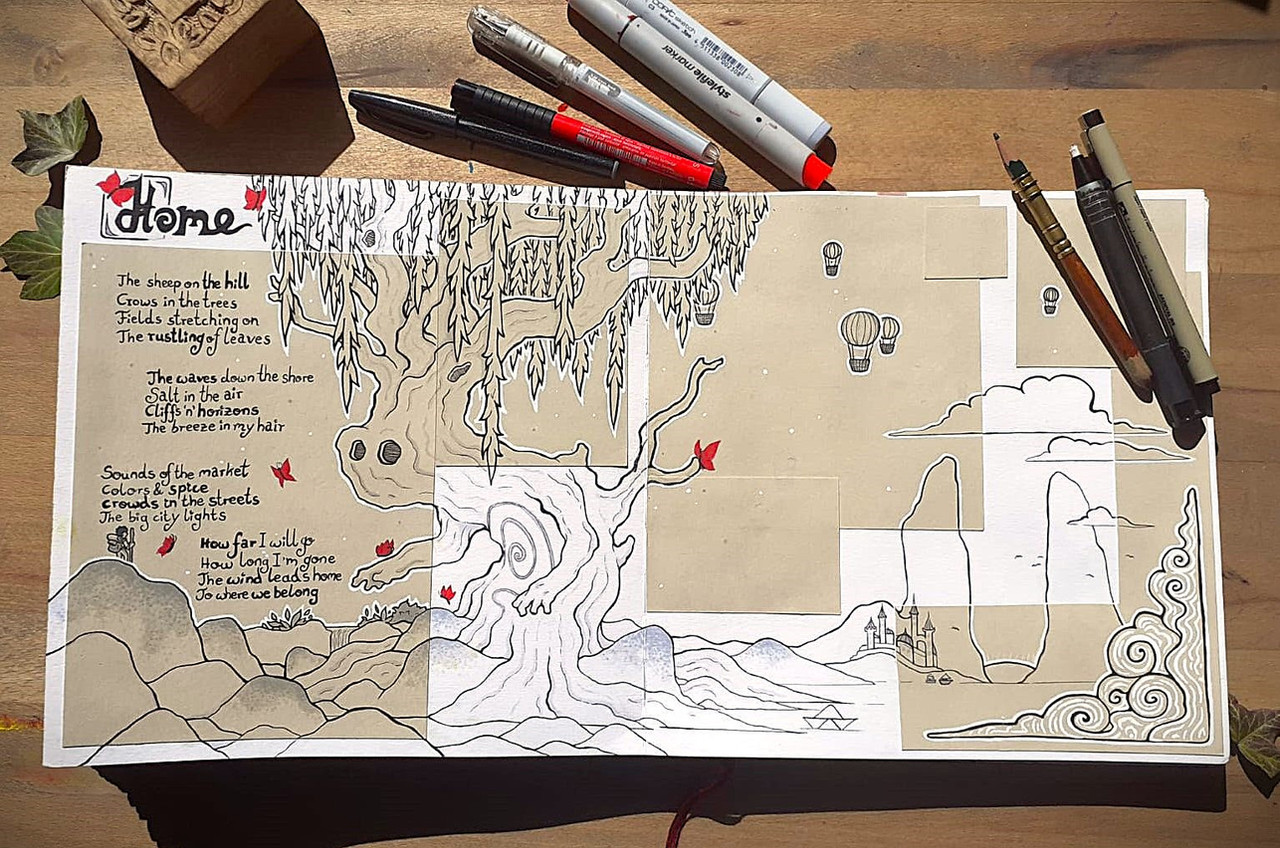 COPIC sketch
stylefile marker
Home
The sheep on the hill
Crows in the trees
Fields stretching on
The rustling of leaves
The waves down the shore
Salt in the air
Cliffs 'n' horizons
The breeze in my hair
Sounds of the market
Colors & spice
crowds in the streets
The big city lights
How far I will go
How long I'm gone
The wind leads home
To where we belong